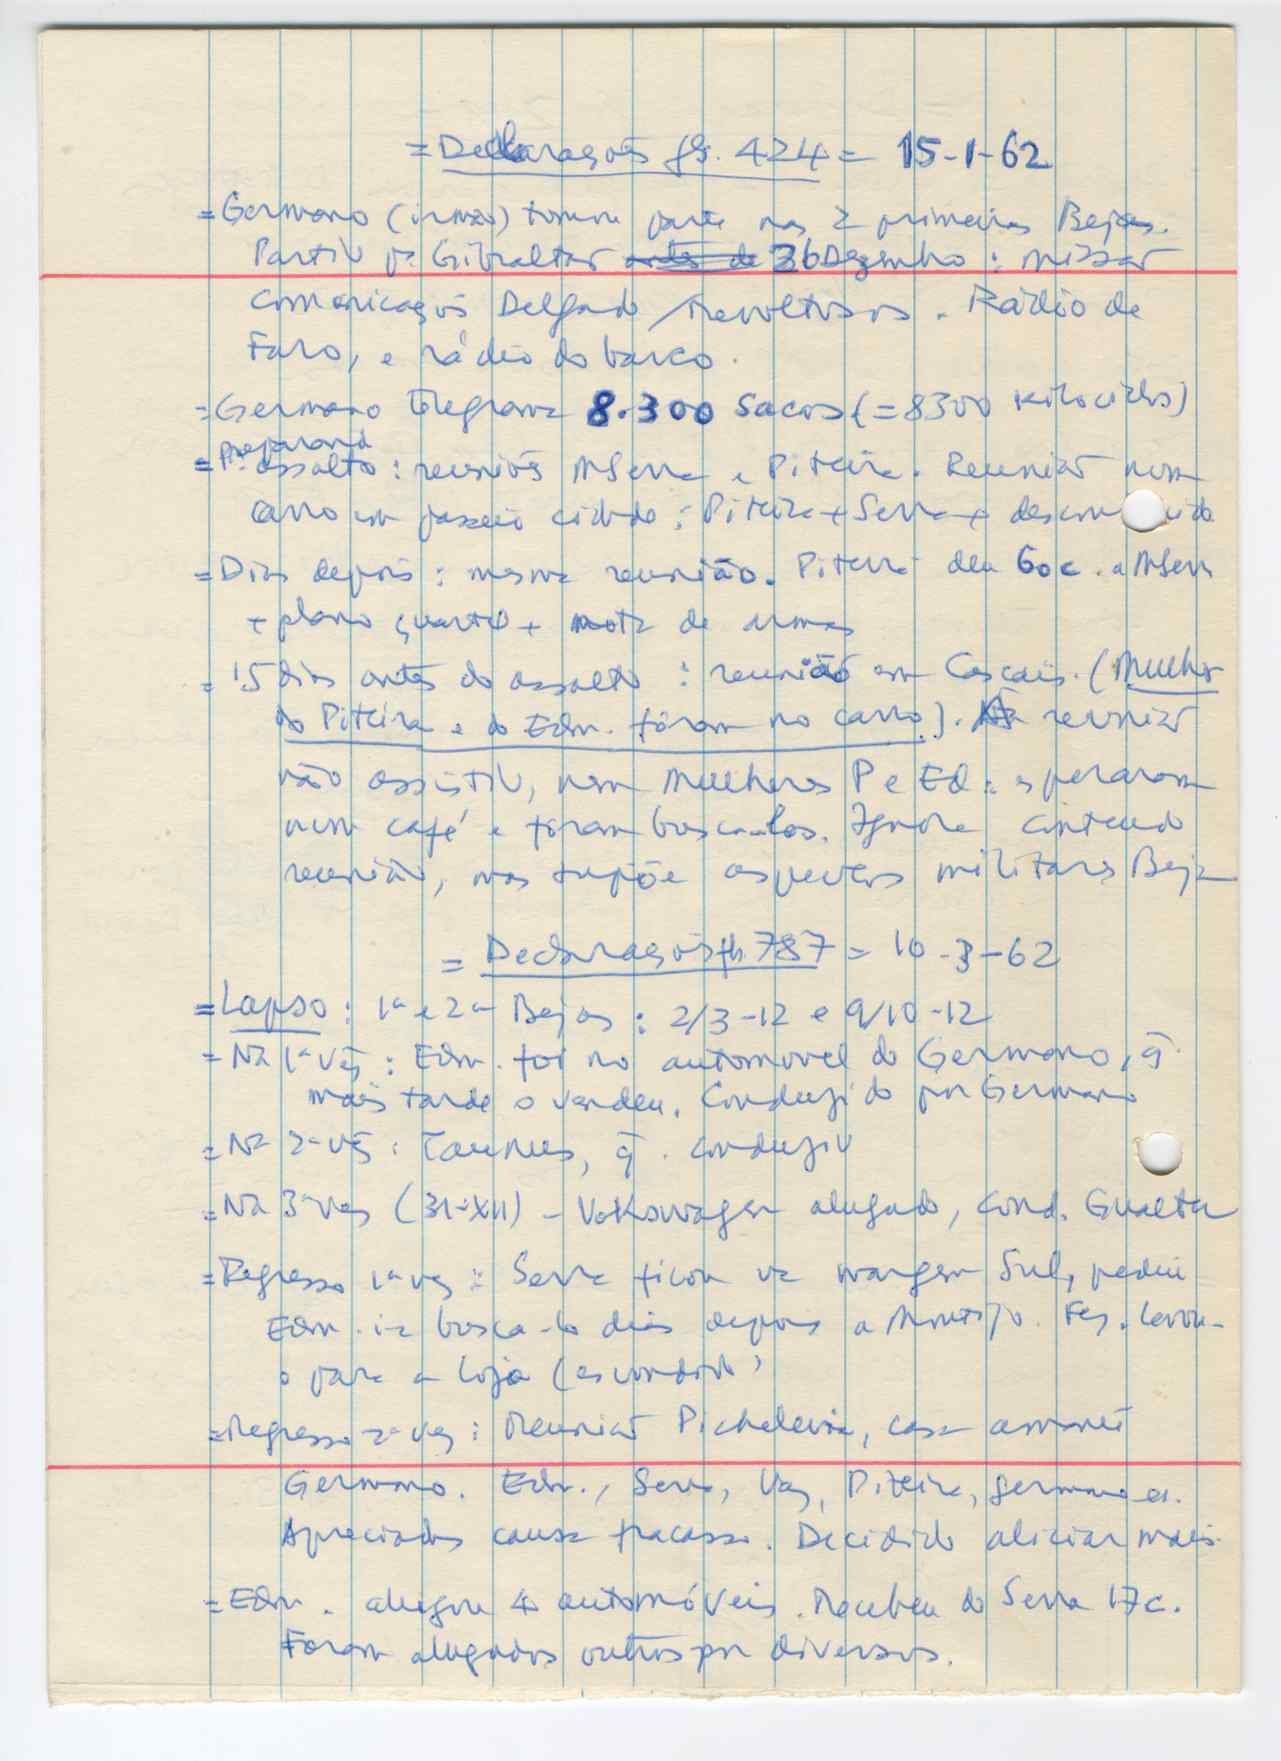 = Declarações fls. 424 = 15-1-62
= Germano (irmão) tomou parte nas 2 primeiras Bejas.
Partiu pª Gibraltar antes de 26 Dezembro : missão
comunicações Delgado / revoltosos. Rádio de
Faro, e rádio do barco.
= Germano telegrama 8.300 sacos (= 8300 kilociclos)
preparand
= Pª assalto : reuniões MSerra e Piteira. Reunião num
carro em passeio cidade : Piteira + Serra + descon ido
= Dias depois : mesma reunião. Piteira deu 60c. a MSerra
+ plano quartel + nota de armas
= 15 dias antes do assalto : reunião em Cascais. (Mulher
do Piteira e do Edm. foram no carro). A reunião
não assistiu, nem mulheres P e Ed : esperaram
num café e foram busca-los. Ignora conteudo
reunião, mas supõe aspectos militares Beja
= Declarações fls. 787 = 10-3-62
= Lapso : 1ª e 2ª Bejas : 2/3-12 e 9/10-12
= Na 1ª vez : Edm. foi no automovel do Germano, q̃.
mais tarde o vendeu. Conduzido por Germano
= Na 2ª vez : Taunus, q̃. conduziu
= Na 3ª vez (31-XII) - Volkswagen alugado, cond. Gualter
= Regresso 1ª vez : Serra ficou na margem Sul, pediu
Edm. ir busca-lo dias depois a Montijo. Fez. Levou-
o para a loja (escondido)
= Regresso 2ª vez : Reunião Picheleira, casa amante
Germano. Edm., Serra, Vaz, Piteira, Germano
Apreciadas causa fracasso. Decidido aliciar mais.
= Edm. alugou 4 automóveis. Recebeu do Serra 17c.
Foram alugados outros por diversos.